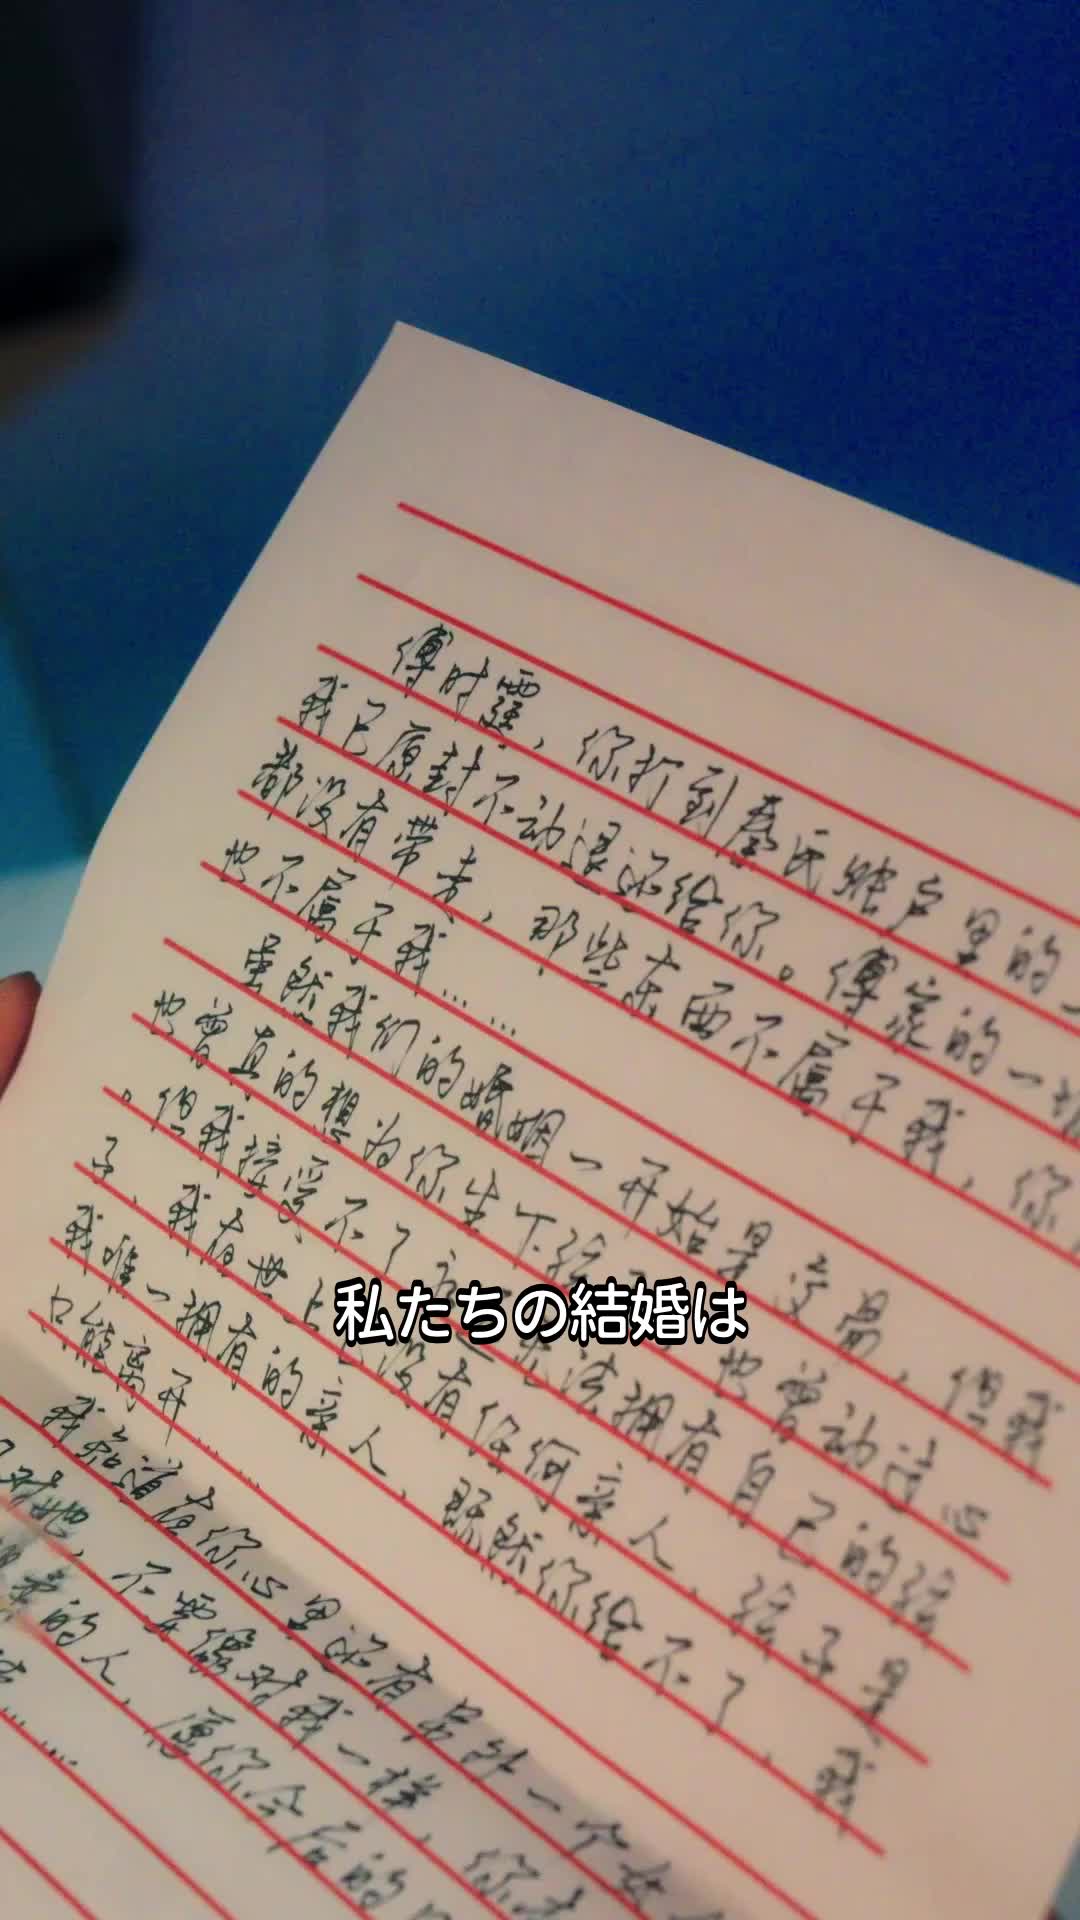 傅时霆，你打到秦氏账户里的
我已原封不动退还给你。傅家的一切
都没有带走，那些东西不属于我，你
也不属于我……
虽然我们的婚姻一开始是交易，但我
也曾真的想为你生下孩 也曾动过心
。但我接受不了 法拥有自己的孩
子，我在世上 没有任何亲人，孩子是
我唯一拥有的亲人，既然你给不了，我
只能离开……
我知道在你心里还有另外一个女
对她，不要像对我一样，你才
的人，愿你今后的
私たちの結婚は